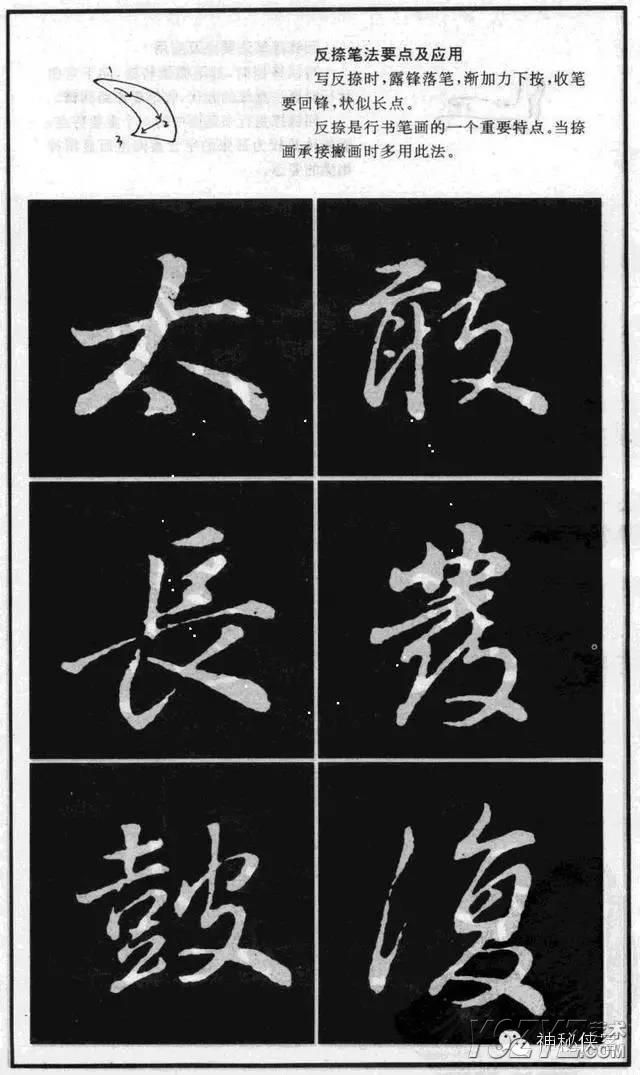 反捺笔法要点及应用
写反捺时，露锋落笔，渐加力下按，收笔
要回锋，状似长点。
反捺是行书笔画的一个重要特点。当捺
画承接撇画时多用此法。
1
2
3
太 敢
長 發
鼓 復
神秘侠